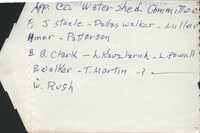 App. Co. Water Shed Committee
J Steele - Dallas Walker - Luther
- Patterson
B. Clark - L. - L. Powell
B Walker - T. Martin -
W. Rush